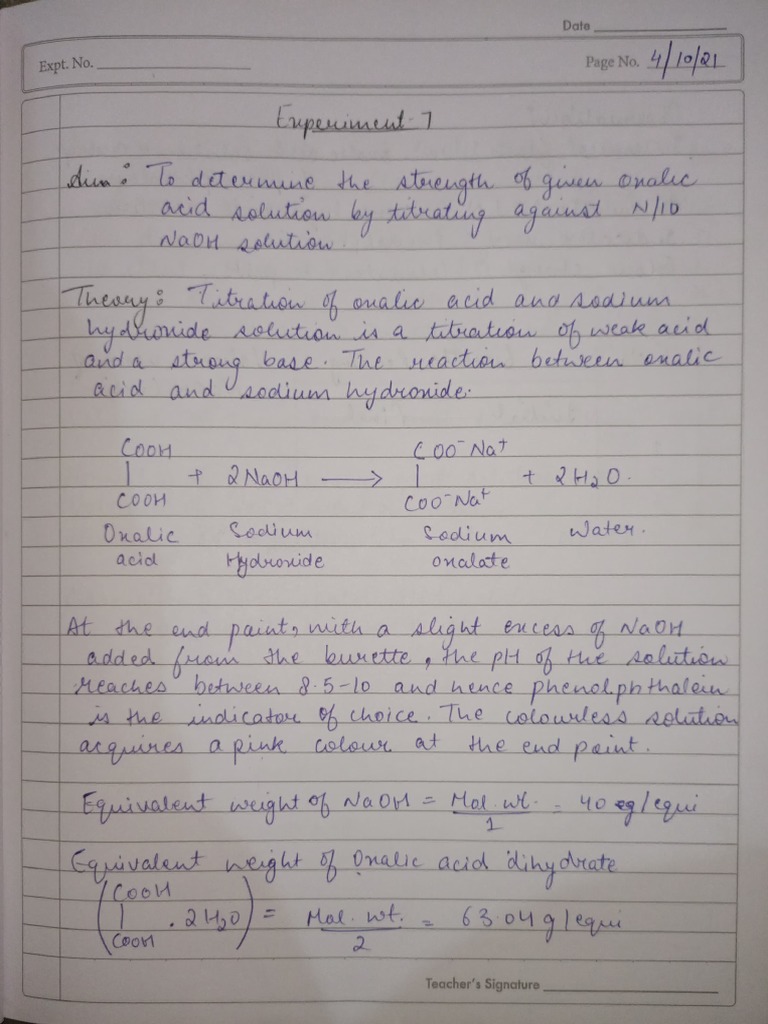 Date
Expt. No.
Page No. 4/10/21
Experiment-7
Aim: To determine the strength of given oxalic
acid solution by titrating against N/10
NaOH solution.
Theory: Titration of oxalic acid and sodium
hydroxide solution is a titration of weak acid
and a strong base. The reaction between oxalic
acid and sodium hydroxide.
COOH COO⁻Na⁺
| + 2NaOH ⟶ | + 2H₂O.
COOH COO⁻Na⁺
Oxalic Sodium Sodium Water.
acid Hydroxide oxalate
At the end point, with a slight excess of NaOH
added from the burette, the pH of the solution
reaches between 8.5-10 and hence phenolphthalein
is the indicator of choice. The colourless solution
acquires a pink colour at the end point.
Equivalent weight of NaOH = Mol. wt. = 40 g/equi
1
Equivalent weight of Oxalic acid dihydrate
(COOH
| . 2H₂O) = Mol. wt. = 63.04 g/equi
COOH 2
Teacher's Signature